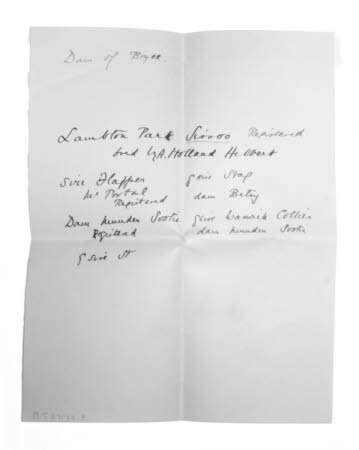 Dam of Boyce.
Lambton Park Sirroo Registered
bred by A. Holland Hibbert
Sire Flapper g sire Stag
Mr Portal dam Betsy
Registered
Dam Munden Sootie g sire Warwick Collier
Registered dam Munden Sootie
g sire St